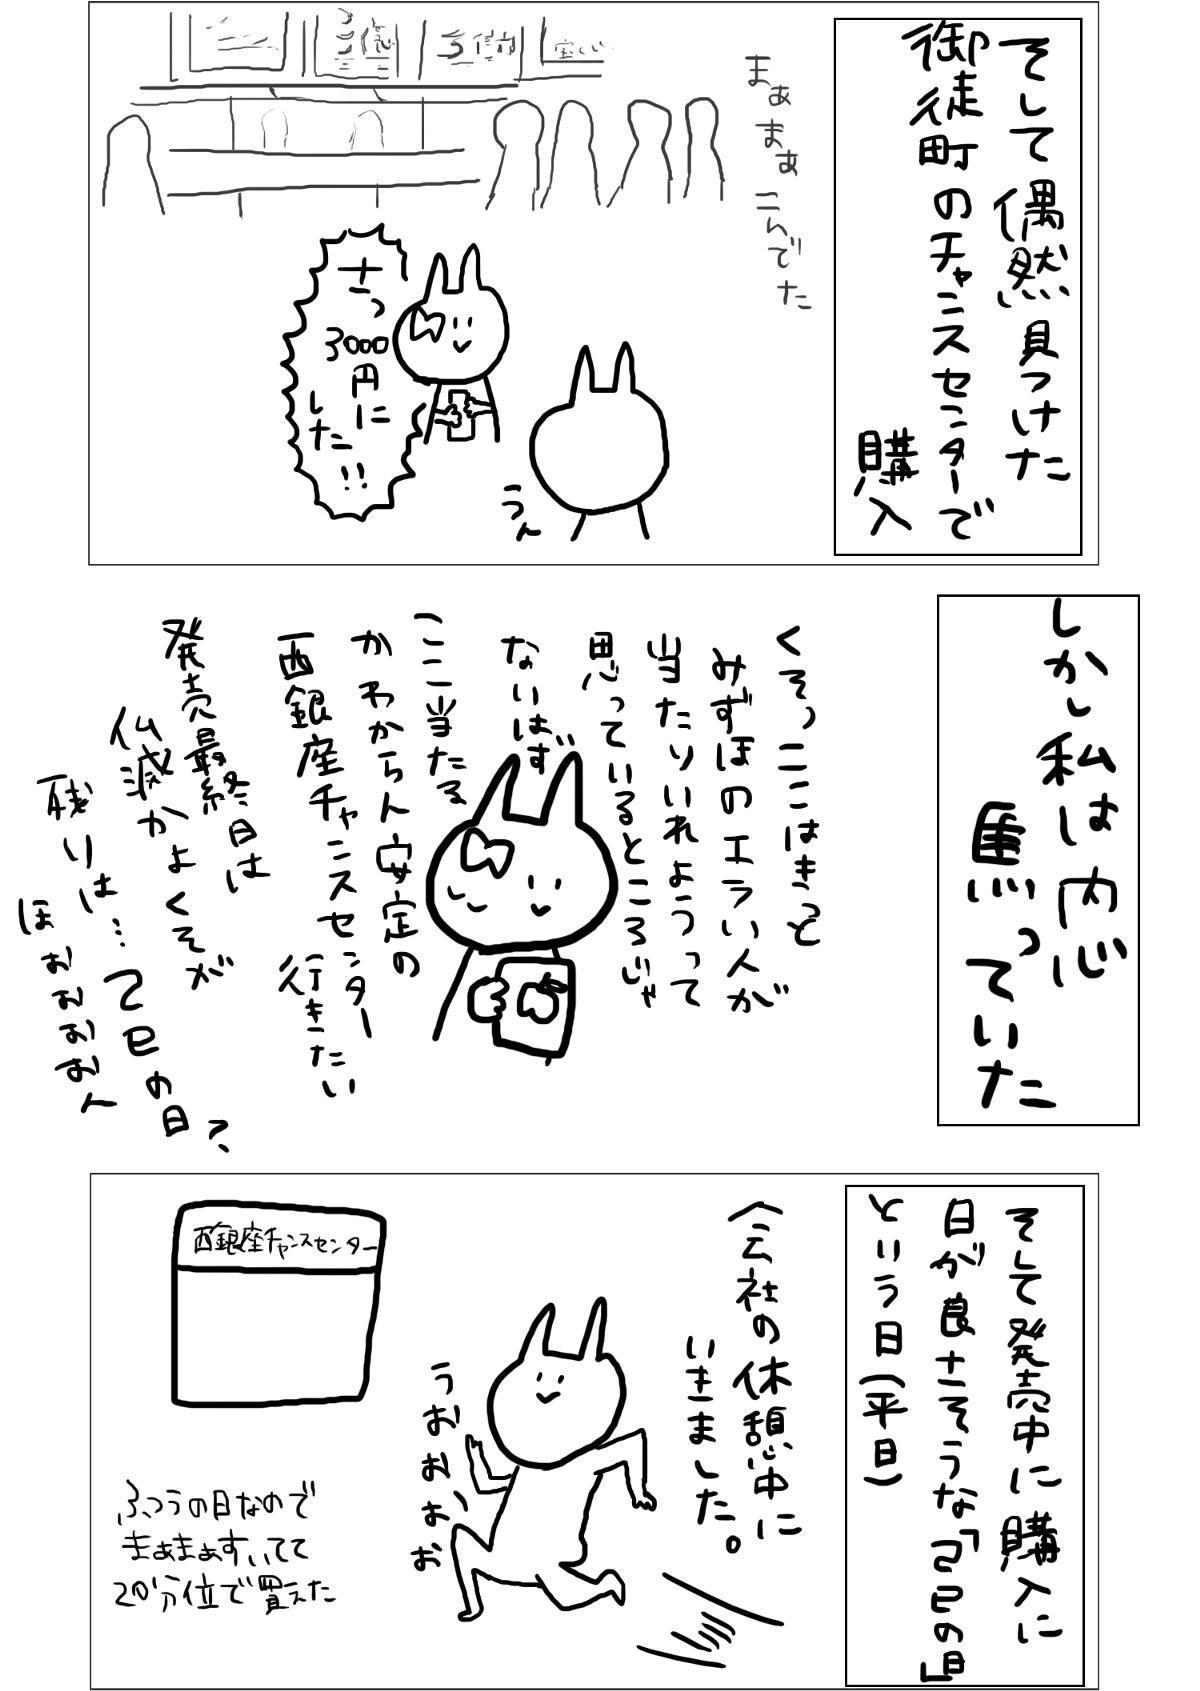 そして偶然見つけた
御徒町のチャンスセンターで
購入
まぁまぁこんでた
3億
3億
宝くじ
さっ
3000円に
した!!
うん
しかし私は内心
焦っていた
くそっここはきっと
みずほのエラい人が
当たりいれようって
思っているところじゃ
ないはず
ここ当たる
かわからん安定の
西銀座チャンスセンター
行きたい
発売最終日は
仏滅かよくそが
残りは…乙巳の日?
ほぉおおおん
そして発売中に購入に
日が良さそうな「乙巳の日」
という日(平日)
〈会社の休憩中に
いきました。
うおおぉぉ
西銀座チャンスセンター
ふつうの日なので
まぁまぁすいてて
20分位で買えた